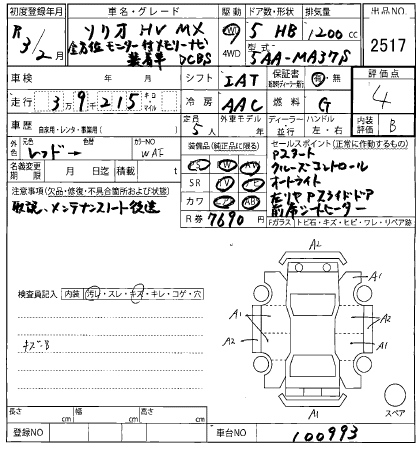 初度登録年月
車名・グレード
駆動
ドア数・形状
排気量
出品NO
R 3/2月
ソリオ HV MX
全方位モニター付メモリーナビ
装着車 DCBS
4WD
5 HB
1200cc
型式
5AA-MA37S
2517
車検 年 月
シフト
IAT
保証書
有・無
評価点
4
走行 3万9千215 キロ・マイル
冷房
AAC
燃料
G
車歴 自家用・レンタ・事業用( )
定員
5人
外車モデル
年
ディーラー
ハンドル
左・右
内装評価
B
外色
元色
レッド→
色替
カラーNO
WAE
装備品(純正品に限る)
セールスポイント(正常に作動するもの)
Pスタート
クルーズコントロール
オートライト
左リヤPスライドドア
前席シートヒーター
名義変更期限 月 日迄
積載 t
SR
カワ
注意事項(欠品・修復・不具合箇所および状態)
取説、メンテナンスノート後送
R券
7690円
Fガラス トビ石・キズ・ヒビ・ワレ・リペア跡
検査員記入
内装 汚レ・スレ・キズ・キレ・コゲ・穴
キズB
A2
A1
A1
A2
A2
A1
A1
スペア
長さ cm
幅 cm
高さ cm
登録NO
車台NO
100993